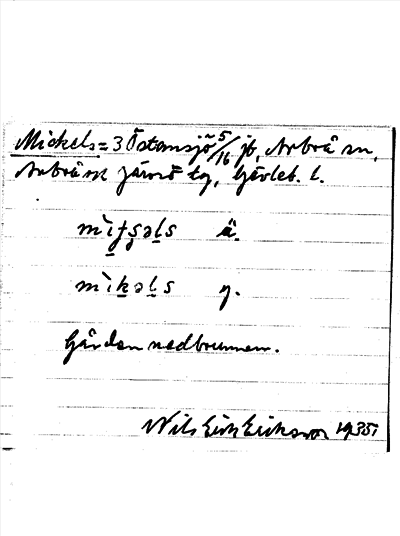 Mickels = 3 Östansjö 5/16 jb, Arbrå sn,
Arbrå och Järvsö tg, Gävleb. l.
mi̱tʂəl̠s ä.
mìk̠əl̠s y.
Gården nedbrunnen.
Nils Erik Eriksson 1935.